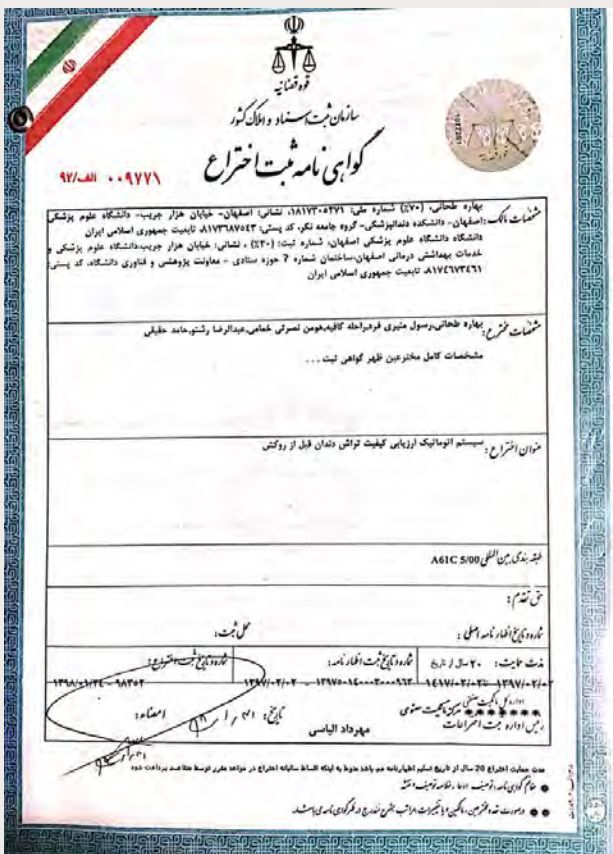 قوه قضائیه
سازمان ثبت اسناد و املاک کشور
گواهی نامه ثبت اختراع
۰۰۹۷۷۱ الف/۹۲
مشخصات مالک: بهاره طحانی، (۷۰٪) شماره ملی: ۱۸۱۷۳۰۵۲۷۱، نشانی: اصفهان- خیابان هزار جریب- دانشگاه علوم پزشکی
اصفهان- دانشکده دندانپزشکی- گروه جامعه نگر، کد پستی: ۸۱۷۳۶۸۷۵٤۳، تابعیت جمهوری اسلامی ایران
دانشگاه دانشگاه علوم پزشکی اصفهان، شماره ثبت: (۳۰٪) ، نشانی: خیابان هزار جریب،دانشگاه علوم پزشکی و
خدمات بهداشتی درمانی اصفهان،ساختمان شماره ? حوزه ستادی - معاونت پژوهشی و فناوری دانشگاه، کد پستی:
۸۱۷٤٦۷۳٤٦۱، تابعیت جمهوری اسلامی ایران
مشخصات مخترع: بهاره طحانی،رسول منیری فرد،راحله کافیه،هومن نصرتی خمامی،عبدالرضا رشتو،حامد حقیقی
مشخصات کامل مخترعین ظهر گواهی ثبت . . .
عنوان اختراع: سیستم اتوماتیک ارزیابی کیفیت تراش دندان قبل از روکش
طبقه بندی بین المللی: A61C 5/00
حق تقدم:
شماره و تاریخ اظهار نامه اصلی: محل ثبت:
مدت حمایت: ۲۰ سال از تاریخ شماره و تاریخ ثبت اظهار نامه: شماره و تاریخ ثبت اختراع:
۱۳۹۷/۰۲/۰۲ تا ۱۴۱۷/۰۲/۰۲ ۱۳۹۷۵۰۱۴۰۰۰۳۰۰۰۹۶۳ - ۱۳۹۷/۰۲/۰۲ ۹۸۳۵۲ - ۱۳۹۸/۰۱/۲۴
اداره کل مالکیت صنعتی
مرکز مالکیت معنوی
رئیس اداره ثبت اختراعات
مهرداد الیاسی
تاریخ: امضاء:
مدت حمایت اختراع 20 سال از تاریخ تسلیم اظهارنامه می باشد منوط به اینکه اقساط سالیانه اختراع در مواعد مقرر توسط متقاضی پرداخت شود
ضمائم گواهی نامه: توصیف، ادعا، خلاصه توصیف و نقشه
در صورت تعدد مخترعین، مالکین و یا تغییرات، مراتب بشرح مندرج در ظهر گواهی نامه می باشد.